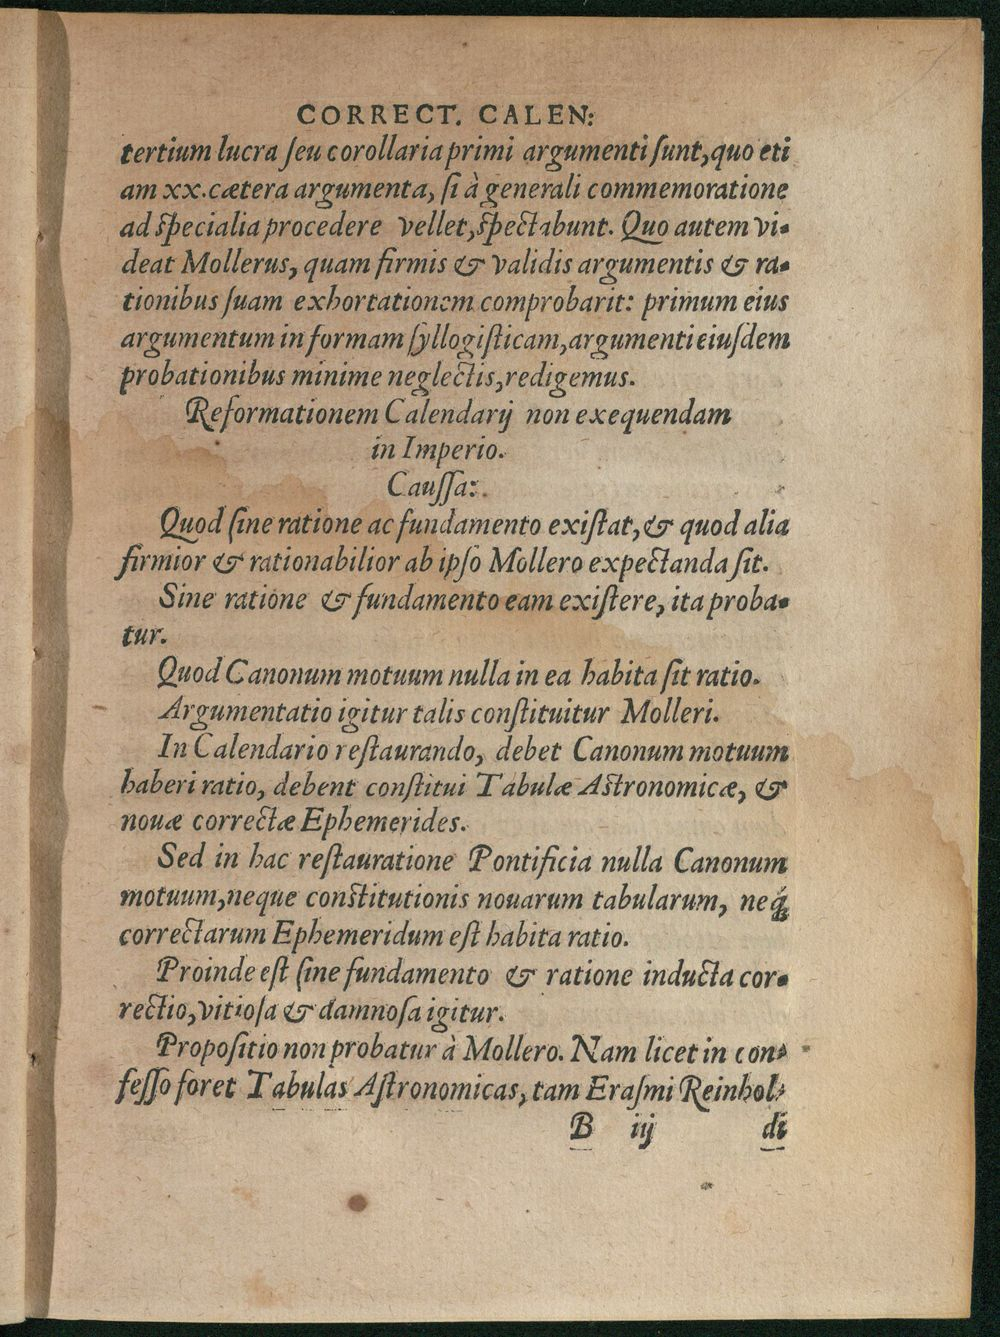 CORRECT. CALEN:
tertium lucra ſeu corollaria primi argumenti ſunt, quo eti
am xx. cætera argumenta, ſi à generali commemoratione
ad ſpecialia procedere vellet, ſpectabunt. Quo autem vi-
deat Mollerus, quam firmis & validis argumentis & ra-
tionibus ſuam exhortationem comprobarit: primum eius
argumentum in formam ſyllogiſticam, argumenti eiuſdem
probationibus minime neglectis, redigemus.
Reformationem Calendarij non exequendam
in Imperio.
Cauſſa:.
Quod ſine ratione ac fundamento exiſtat, & quod alia
firmior & rationabilior ab ipſo Mollero expectanda ſit.
Sine ratione & fundamento eam exiſtere, ita proba-
tur.
Quod Canonum motuum nulla in ea habita ſit ratio.
Argumentatio igitur talis conſtituitur Molleri.
In Calendario reſtaurando, debet Canonum motuum
haberi ratio, debent conſtitui Tabulæ Aſtronomicæ, &
nouæ correctæ Ephemerides.
Sed in hac reſtauratione Pontificia nulla Canonum
motuum, neque conſtitutionis nouarum tabularum, neq́;
correctarum Ephemeridum eſt habita ratio.
Proinde eſt ſine fundamento & ratione inducta cor-
rectio, vitioſa & damnoſa igitur.
Propoſitio non probatur à Mollero. Nam licet in con-
feſſo foret Tabulas Aſtronomicas, tam Eraſmi Reinhol-
B iij di